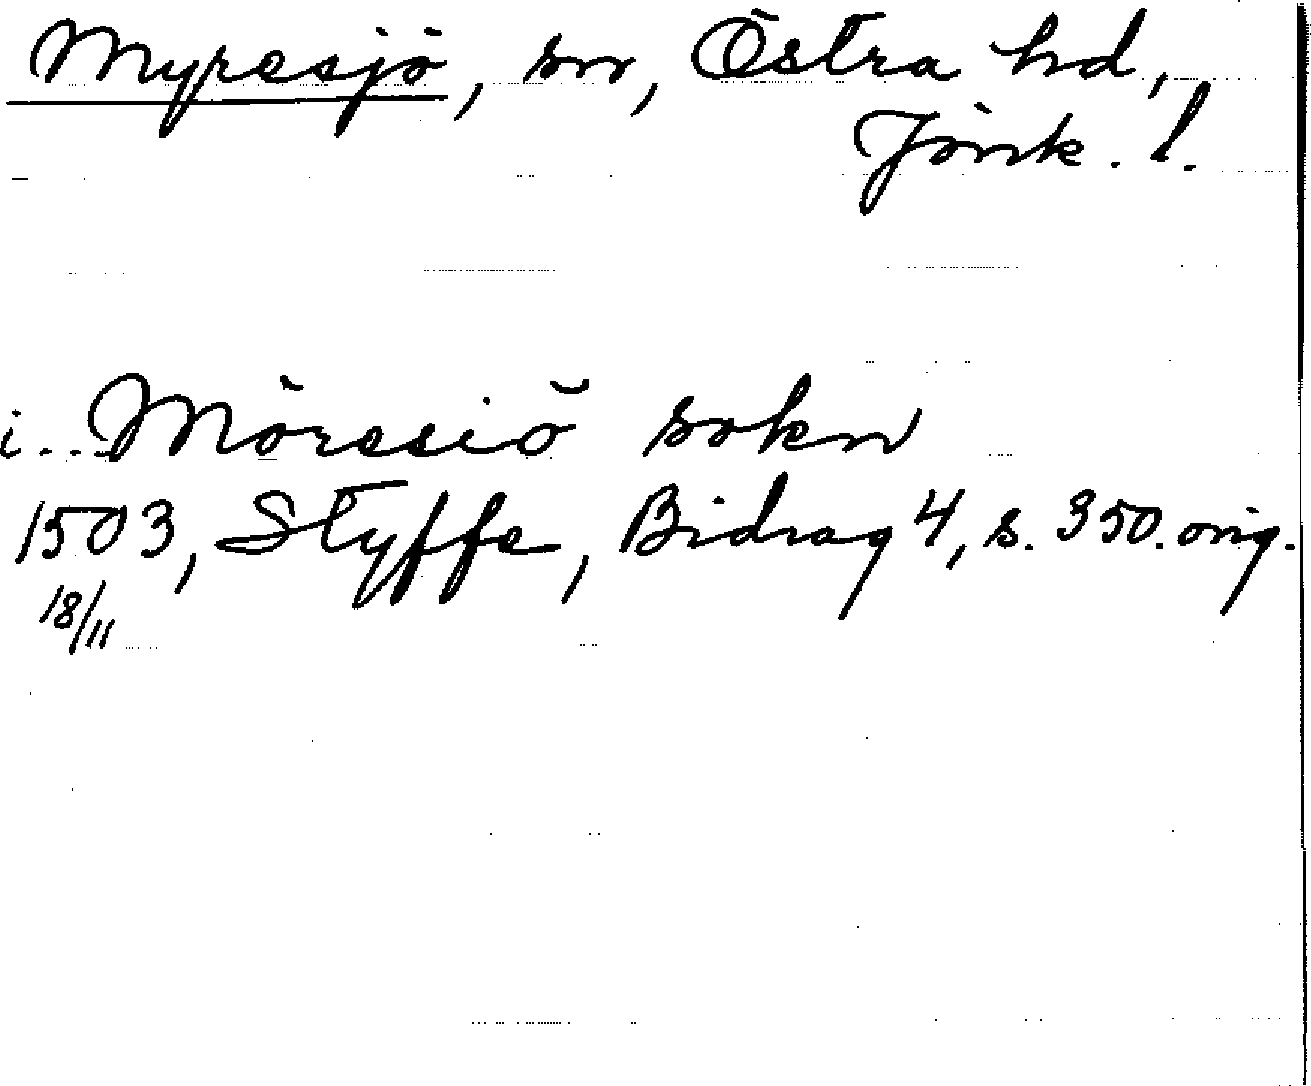 Myresjö, sn, Östra hd,
Jönk. l.
i... Möresiö sokn
1503, Styffe, Bidrag 4, s. 350. orig.
18/11